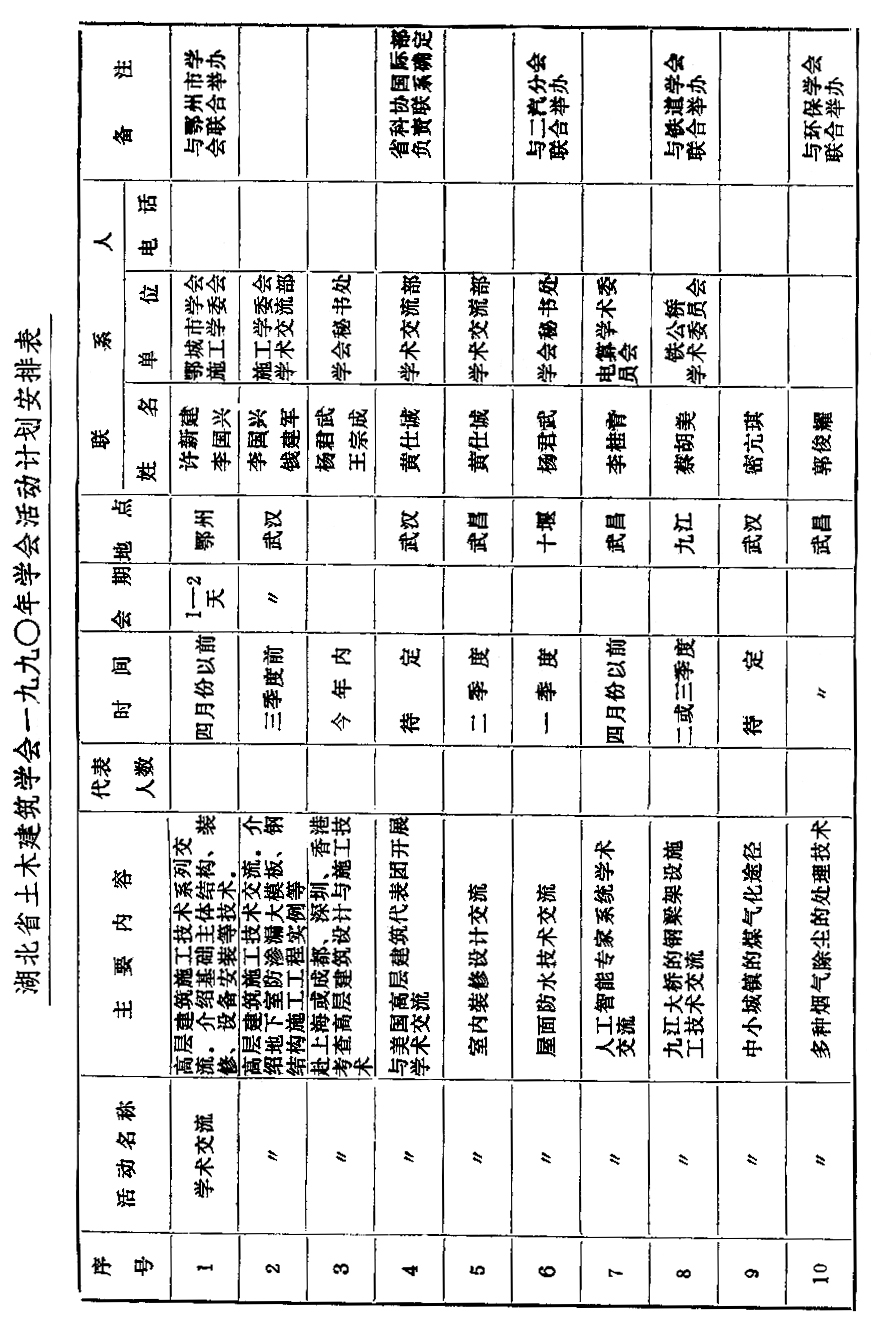 湖北省土木建筑学会一九九〇年学会活动计划安排表
序号
活动名称
主要内容
代表
人数
时间
会期
地点
联系人
姓名
单位
电话
备注
1
学术交流
高层建筑施工技术系列交
流。介绍基础主体结构、装
修、设备安装等技术。
四月份以前
1—2
天
鄂州
许新建
李国兴
鄂城市学会
施工学委会
与鄂州市学
会联合举办
2
〃
高层建筑施工技术交流。介
绍地下室防渗漏大模板、钢
结构施工工程实例等
三季度前
〃
武汉
李国兴
钱建军
施工学委会
学术交流部
3
〃
赴上海或成都、深圳、香港
考查高层建筑设计与施工技
术
今年内
杨君武
王宗成
学会秘书处
4
〃
与美国高层建筑代表团开展
学术交流
待定
武汉
黄仕诚
学术交流部
省科协国际部
负责联系确定
5
〃
室内装修设计交流
二季度
武昌
黄仕诚
学术交流部
6
〃
屋面防水技术交流
一季度
十堰
杨君武
学会秘书处
与二汽分会
联合举办
7
〃
人工智能专家系统学术
交流
四月份以前
武昌
李桂青
电算学术委
员会
8
〃
九江大桥的钢梁架设施
工技术交流
二或三季度
九江
蔡胡美
铁公桥
学术委员会
与铁道学会
联合举办
9
〃
中小城镇的煤气化途径
待定
武汉
密亢琪
10
〃
多种烟气除尘的处理技术
〃
武昌
郭俊耀
与环保学会
联合举办